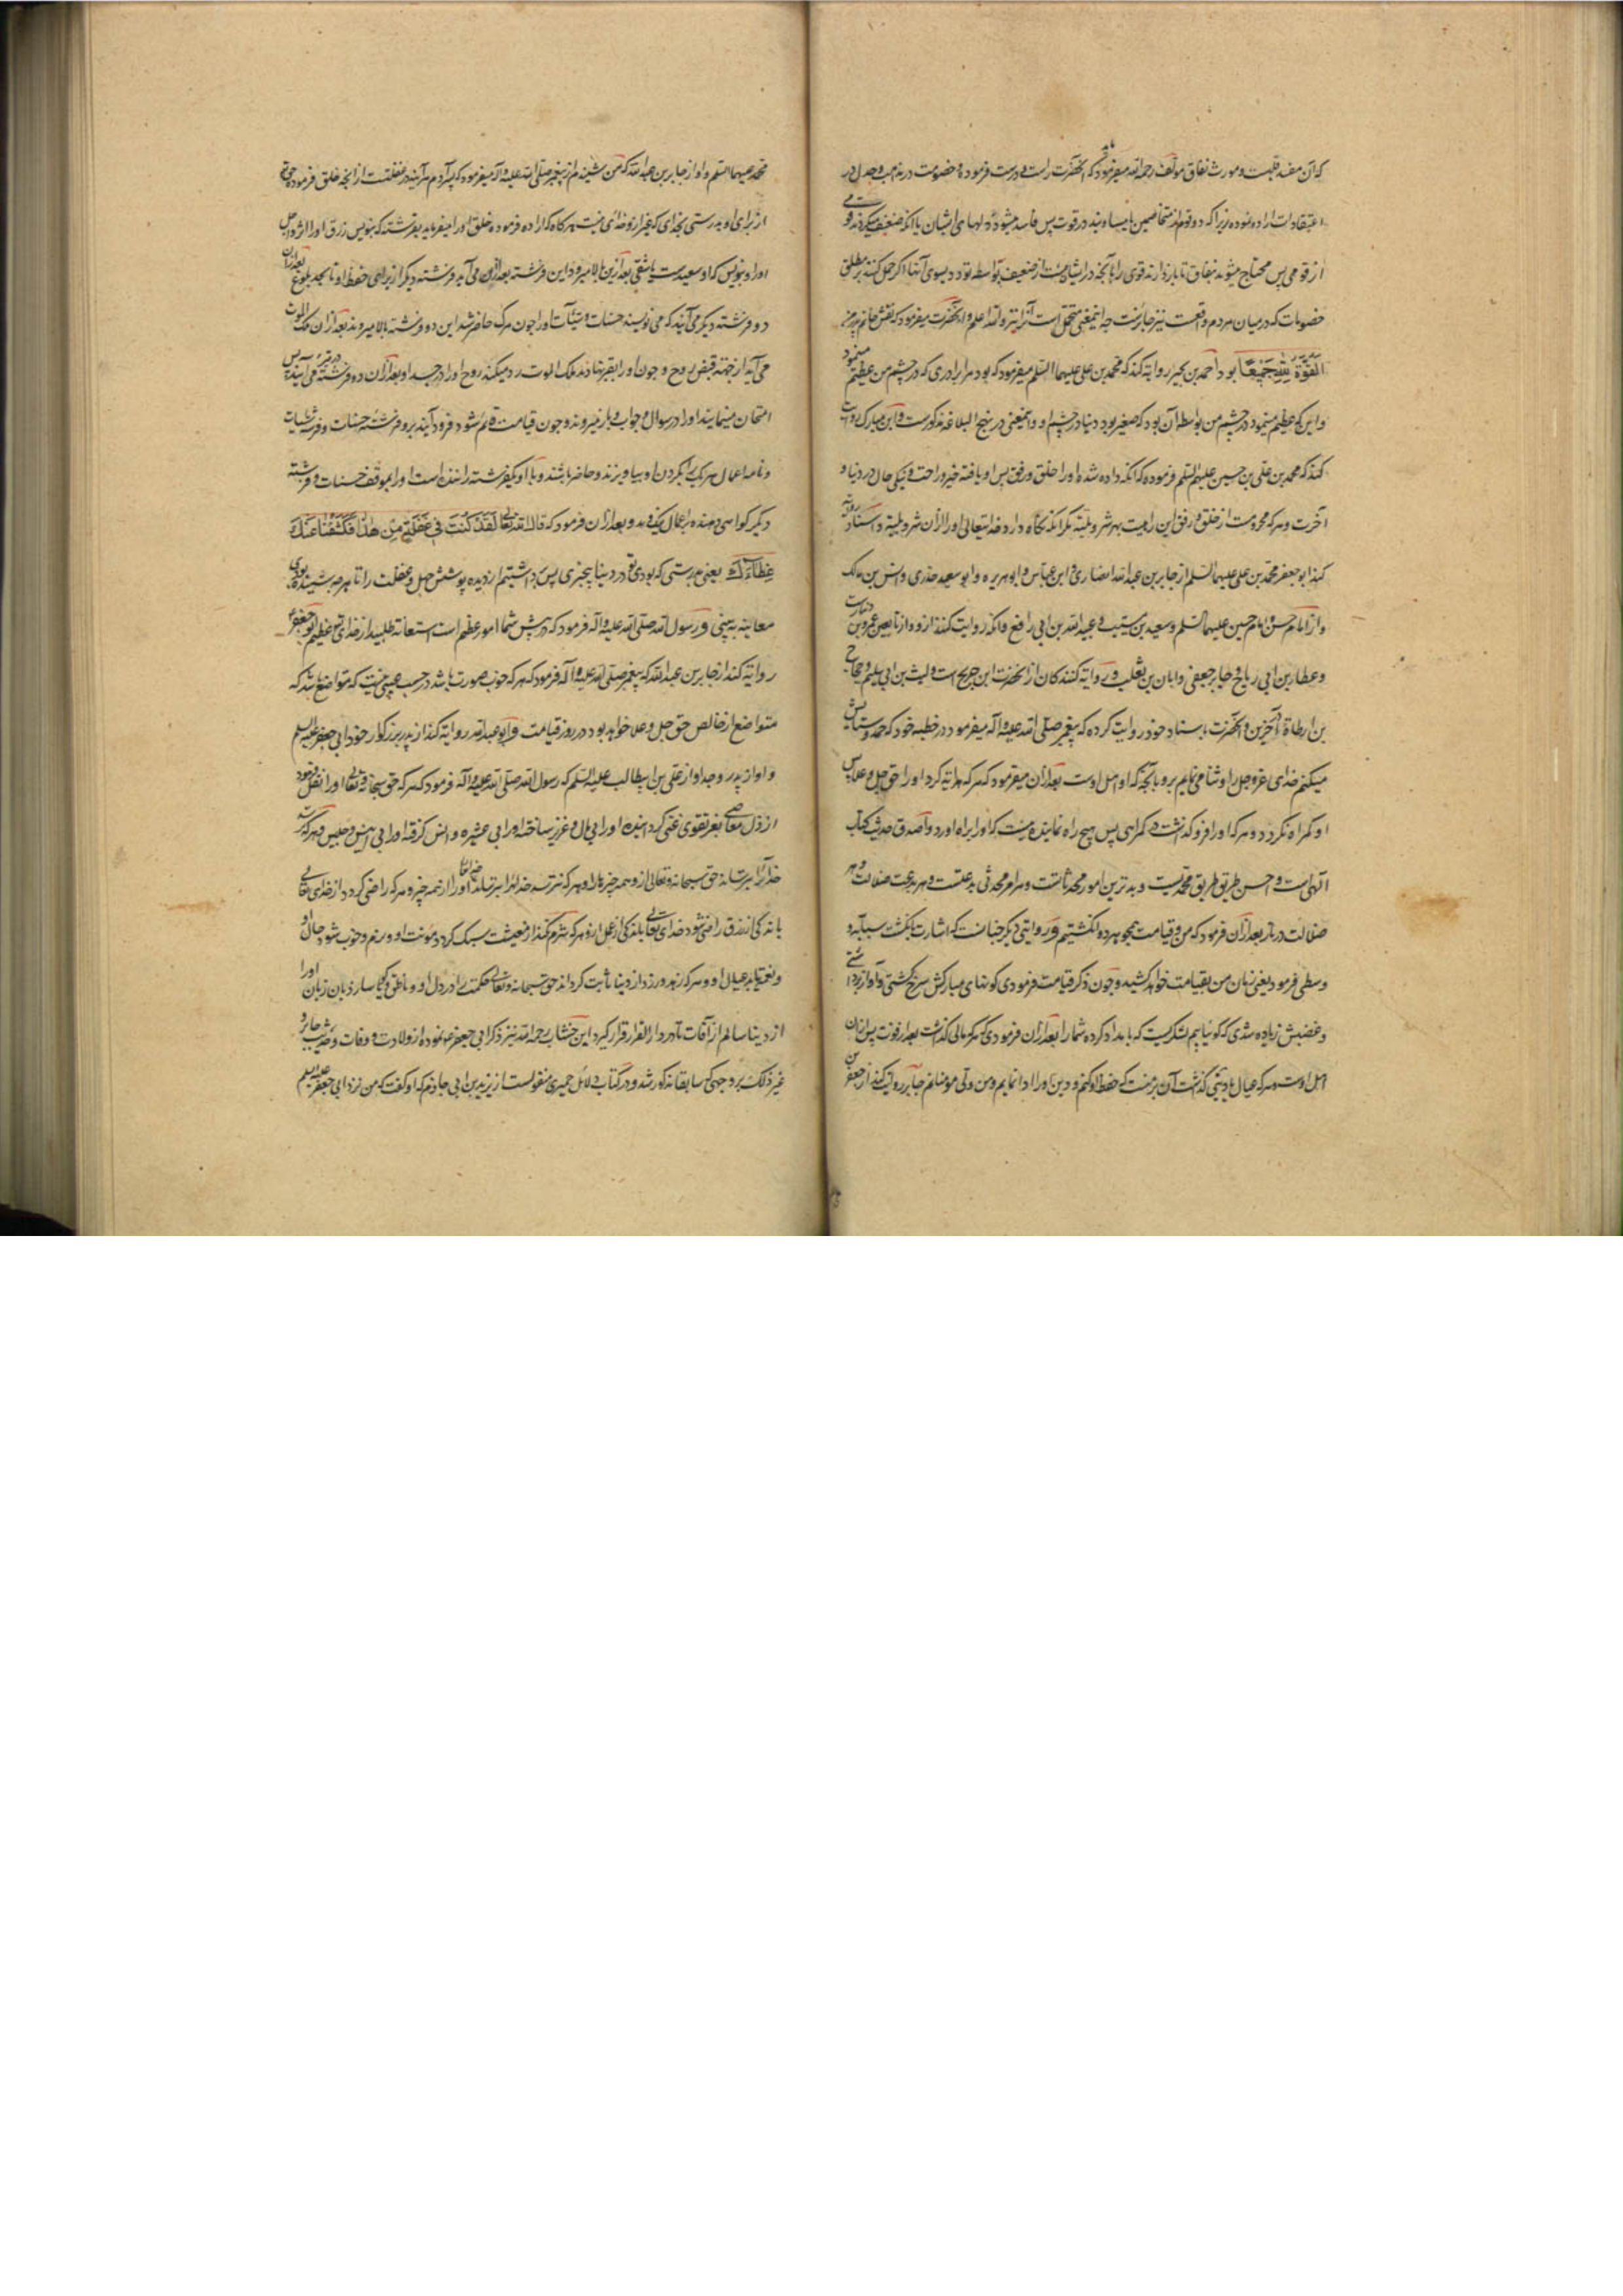 که آن مفسد قلبست و مورث نفاق مؤلف رحمه الله میفرمود که آنحضرت راست و درست فرموده خصومت در مذهب و جدل در
اعتقادات اراده نموده زیرا که دو قوم از متخاصمین یا مساویند در قوت پس فاسد میشود دلهای ایشان یا آنکه ضعیف میگردند قومی
از قومی پس محتاج میشوند بنفاق تا باز دارند قوی را بآنچه در ایشانست از ضعیف بواسطه تودد بسوی آنها اگر حمل کنند بر مطلق
خصومات که در میان مردم واقعست نیز جایزست چه اینمعنی محتمل است آنرا نیز والله اعلم و آنحضرت میفرمود که نقش خاتم پدرمن
القوة لله جمیعا بود احمد بن بحیر روایة کند که محمد بن علی علیهما السلم میفرمود که بود مرا برادری که در چشم من عظیم مینمود
و اینکه عظیم مینمود در چشم من بواسطه آن بود که صغیر بود دنیا در چشم او و اینمعنی در نهج البلاغه مذکورست و ابن مبارک روایت
کند که محمد بن علی بن حسین علیهم السلم فرموده که آنکه داده شده او را خلق و رفق پس او یافته خیر و راحت و نیکی حال در دنیا و
آخرت و هر که محرومست از خلق و رفق این راهیست بهر شر و بلیة مگر آنکه نگاه دارد خدایتعالی او را از آن شر و بلیة و اسناد روایة
کند ابو جعفر محمد بن علی علیهما السلم از جابر بن عبد الله انصاری و ابن عباس و ابو هریره و ابو سعید خدری و انس بن مالک
و از امام حسن و امام حسین علیهما السلم و سعید بن مسیب و عبید الله بن ابی رافع و آنکه روایت کنند از و از تابعین عمرو بن دینارست
و عطا بن ابی رباح و جابر جعفی و ابان بن تغلب و روایة کنندگان از آنحضرت ابن جریح است و لیث بن ابی سلیم و حجاج
بن ارطاة و آخرین و آنحضرت باسناد خود روایت کرده که پیغمبر صلی الله علیه و آله میفرمود در خطبه خود که حمد و ستایش
میکنم خدای عز و جل را و ثنا می نمایم برو بآنچه که او اهل اوست بعد از آن میفرمود که هر که هدایة کرد او را حق جل و علا پس
او گمراه نگردد و هر که او را فرو گذاشت در گمراهی پس هیچ راه نماینده نیست که او را براه آورد و اصدق حدیث کتاب
الهی است و احسن طریق طریق محمدیست و بدترین امور محدثاتست و هر امر محدثی بدعتست و هر بدعت ضلالت و هر
ضلالت در نار بعد از آن فرمود که من و قیامت همچو هر دو انگشتیم و روایتی دیگر چنانست که اشارت بانگشت سبابه و
وسطی فرمود یعنی زمان من بقیامت خواهد کشید و چون ذکر قیامت فرمودی گونهای مبارکش سرخ گشتی و آواز برداشتی
و غضبش زیاده شدی که گوئیا بیم لشکریست که بامداد کرده شما را بعد از آن فرمودی که هر که مالی گذاشت بعد از فوت پس از آن
اهل اوست و هر که عیال یا دینی گذاشت آن بر منست که حفظ او کنم و دین او را ادا نمایم و من ولی مؤمنانم جابر روایت کند از جعفر بن
محمد علیهما السلم و او از جابر بن عبد الله که من شنیدم از پیغمبر صلی الله علیه و آله میفرمود که پسر آدم هر آینه در غفلتست از آنچه خلق فرموده حق
از برای او بدرستی بخدای که غیر از و خدای نیست هر گاه که اراده فرموده خلق او را میفرماید بفرشته که بنویس رزق او را اثر و اجل
او را و بنویس که او سعیدست یا شقی بعد ازین بالا میرود این فرشته بعد از آن می آید فرشته دیگر از برای حفظ او تا بحد بلوغ بعد از آن
دو فرشته دیگر می آیند که می نویسند حسنات و سیآت او را چون مرگ حاضر شد این دو فرشته بالا میروند بعد از آن ملک الموت
می آید از جهة قبض روح و چون او را بقبر نهادند ملک الموت رد میکند روح او را در جسد او بعد از آن دو فرشته قبر می آیند پس
امتحان مینمایند او را در سوال و جواب و باز میروند و چون قیامت قائم شود فرود آیند برو فرشته حسنات و فرشته سیآت
و نامه اعمال هر یک را بگردن او بیاویزند و حاضر باشند و با او یکفرشته راننده است او را بموقف حسنات و فرشته
دیگر گواهی دهنده باعمال نیک و بد و بعد از آن فرمود که قال الله تعالی لقد کنت فی غفلة من هذا فکشفنا عنک
غطاءک یعنی بدرستی که بودی تو در دنیا ببیخبری پس برداشتیم از دیده پوشش جهل و غفلت را تا هر چه شنیده بودی
معاینه به بینی و رسول الله صلی الله علیه و آله فرمود که در پیش شما امور عظیم است استعانة طلبید از خدای تع عظیم ابو جعفر ع
روایة کند از جابر بن عبد الله که پیغمبر صلی الله علیه و آله فرمود که هر که خوب صورت باشد در حسب عیبی نیست که متواضع باشد که
متواضع از خالص حق جل و علا خواهد بود در روز قیامت و ابو عبد الله روایة کند از پدر بزرگوار خود ابی جعفر علیه السلم
و او از پدر و جد او از علی بن ابیطالب علیه السلم که رسول الله صلی الله علیه و آله فرمود که هر که حق سبحانه و تعالی او را نقل فرمود
از ذل معاصی بعز تقوی غنی گردانیده او را بی مال و عزیز ساخته او را بی عشیره و انس گرفته او را بی انیس و جلیس و هر که ترسد
خدا را بترساند حق سبحانه و تعالی از و همه چیز را و هر که نترسد خدا را بترساند خدای تعالی او را از همه چیز و هر که راضی گردد از خدای تعالی
باندکی از رزق راضی شود خدای تعالی باندکی از عمل او و هر که شرم نکند از معیشت سبک گردد مؤنت او و نرم و خوب شود حال او
و نعمت یابد عیال او و هر که زهد ورزد از دنیا ثابت گرداند حق سبحانه و تعالی حکمت را در دل او و ناطق و گویا سازد بآن زبان او را
از دنیا سالم از آفات تا در دار القرار قرار گیرد ابن خشاب رحمه الله نیز ذکر ابی جعفر ع نموده از ولادت و وفات و حدیث جابر و
غیر ذلک بر وجهی که سابقا مذکور شد و در کتاب دلائل حمیری منقولست از یزید بن ابی حازم که او گفت که من نزد ابی جعفر علیه السلم